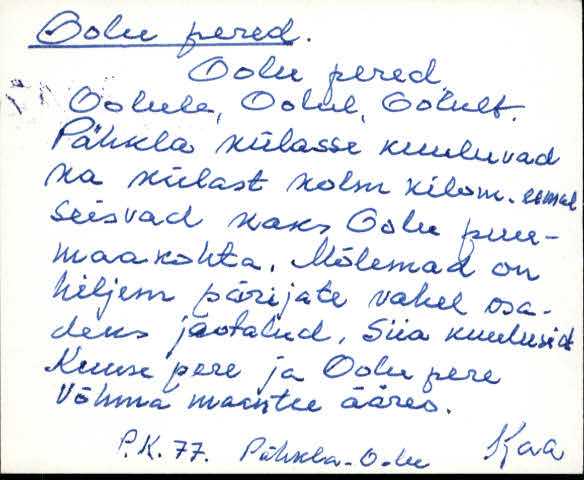 Oolu pered.
Oolu pered
Oolule, Oolul, Oolult.
Pähkla külasse kuuluvad
ka külast kolm kilom. eemal
seisvad kaks Oolu puu-
maakohta. Mõlemad on
hiljem pärijate vahel osa-
deks jaotatud. Siia kuulusid
Kuuse pere ja Oolu pere
Võhma maantee ääres.
P.K. 77. Pähkla-Oolu Kaa